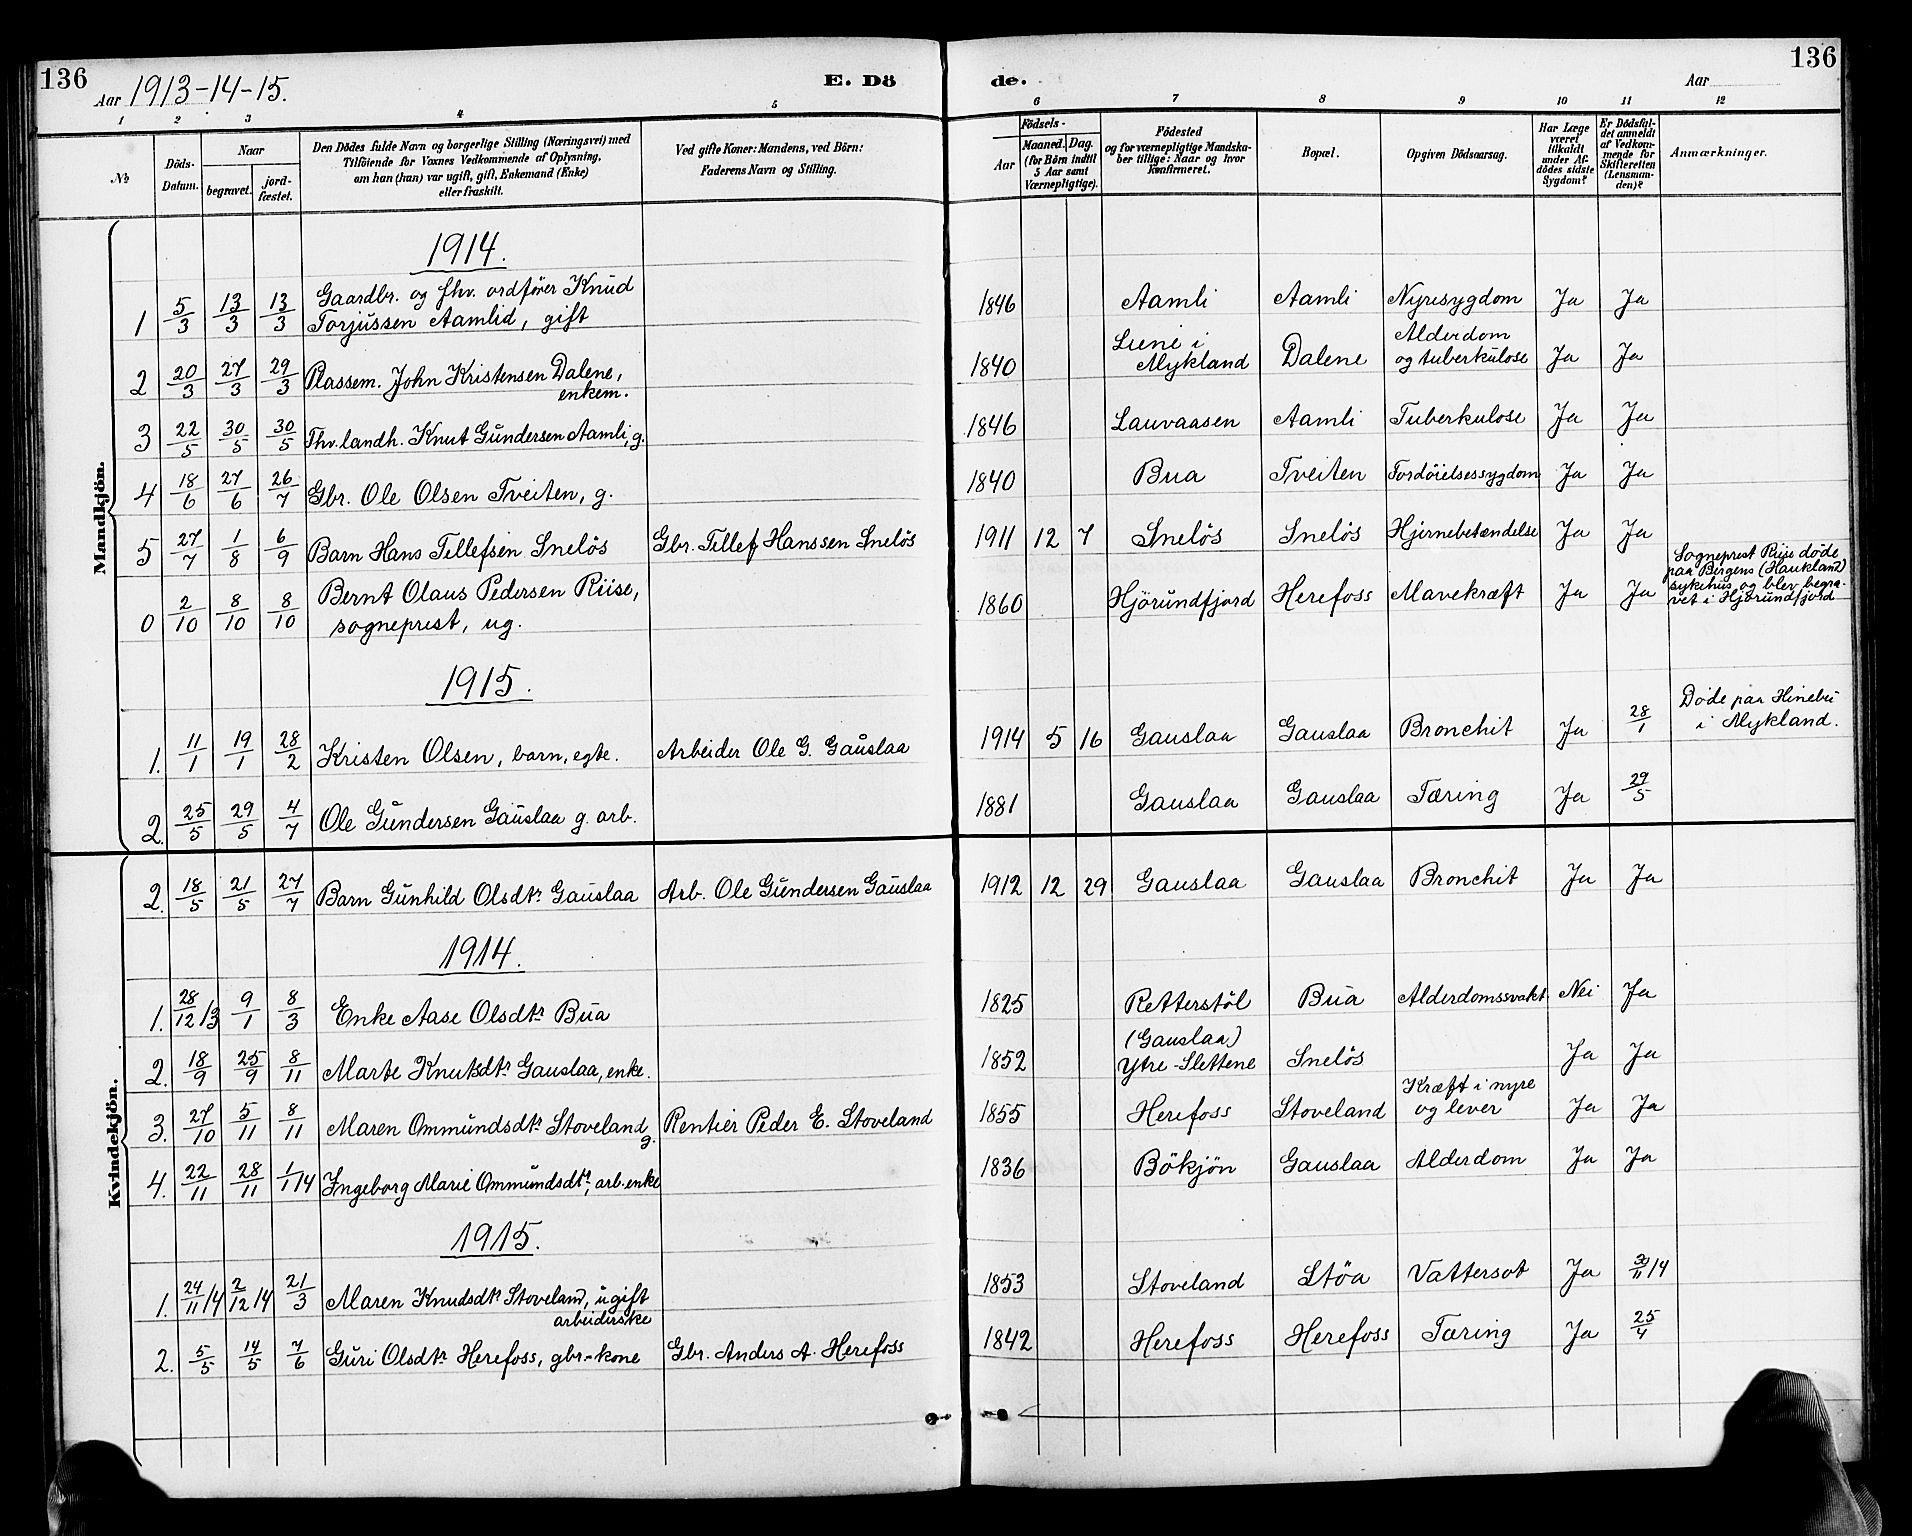 136
Aar 1913-14-15.
E. Dö
de.
Aar
136
1
2
3
4
5
6
7
8
9
10
11
12
No
Döds-Datum.
Naar
begravet.
jord-fæstet.
Den Dödes fulde Navn og borgerlige Stilling (Næringsvei) med
Tilföiende for Voxnes Vedkommende af Oplysning,
om han (hun) var ugift, gift, Enkemand (Enke)
eller fraskilt.
Ved gifte Koner: Mandens, ved Börn:
Faderens Navn og Stilling.
Födsels-
Aar
Maaned. Dag.
(for Börn indtil
5 Aar samt
Værnepligtige).
Födested
og for værnepligtige Mandska-
ber tillige: Naar og hvor
konfirmeret.
Bopæl.
Opgiven Dödsaarsag.
Har Læge
været
tilkaldt
under Af-
dödes sidste
Sygdom?
Er Dödsfal-
det anmeldt
af Vedkom-
mende for
Skifteretten
(Lensman-
den)?
Anmærkninger.
Mandkjön.
1914.
1 5/3 13/3 13/3 Gaardbr. og fhv. ordfører Knud Torjussen Aamlid, gift 1846 Aamli Aamli Nyresygdom Ja Ja
2 20/3 27/3 29/3 Plassem. John Kristensen Dalene, enkem. 1840 Liene i Mykland Dalene Alderdom og tuberkulose Ja Ja
3 22/5 30/5 30/5 Fhv. landh. Knut Gundersen Aamli, g. 1846 Lauvaasen Aamli Tuberkulose Ja Ja
4 18/6 27/6 26/7 Gbr. Ole Olsen Tveiten, g. 1840 Bua Tveiten Fordøielsessygdom Ja Ja
5 27/7 1/8 6/9 Barn Hans Tellefsen Sneløs Gbr. Tellef Hanssen Sneløs 1911 12 7 Sneløs Sneløs Hjernebetændelse Ja Ja
0 2/10 8/10 8/10 Bernt Olaus Pedersen Riise, sogneprest, ug. 1860 Hjörundfjord Herefoss Mavekræft Ja Ja Sogneprest Riise døde paa Bergens (Haukland) sykehus og blev begra-vet i Hjörundfjord
1915.
1. 11/1 19/1 28/2 Kristen Olsen, barn, egte. Arbeider Ole G. Gauslaa 1914 5 16 Gauslaa Gauslaa Bronchit Ja 28/1 Døde paa Hinebu i Mykland.
2. 25/5 29/5 4/7 Ole Gundersen Gauslaa g. arb. 1881 Gauslaa Gauslaa Tæring Ja 29/5
Kvindekjön.
2. 18/5 21/5 27/7 Barn Gunhild Olsdtr. Gauslaa Arb. Ole Gundersen Gauslaa 1912 12 29 Gauslaa Gauslaa Bronchit Ja Ja
1914.
1. 28/12/3 9/1 8/3 Enke Aase Olsdtr. Bua 1825 Retterstöl Bua Alderdomssvakt. Nei Ja
2. 18/9 25/9 8/11 Marte Knutsdtr. Gauslaa, enke. 1852 (Gauslaa) Ytre-Slettene Sneløs Ja Ja
3. 27/10 5/11 8/11 Maren Ommundsdtr. Stoveland g. Rentier Peder E. Stoveland 1855 Herefoss Stoveland Kræft i nyre og lever Ja Ja
4. 22/11 28/11 1/1 14 Ingeborg Marie Ommundsdtr., arb.enke 1836 Bökjön Gauslaa Alderdom Ja Ja
1915.
1. 24/11/14 2/12 14 21/3 Maren Knudsdtr. Stoveland, ugift arbeiderske 1853 Stoveland Støa Vattersot Ja 30/11/14
2. 5/5 14/5 7/6 Guri Olsdtr. Herefoss, gbr.-kone Gbr. Anders A. Herefoss 1842 Herefoss Herefoss Tæring Ja 25/4